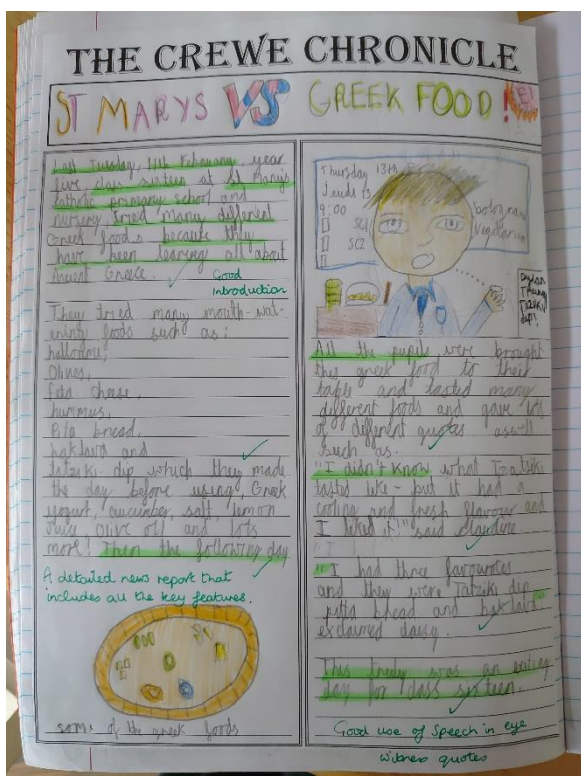 THE CREWE CHRONICLE
ST MARYS VS GREEK FOOD!
Last Tuesday, 11th February, year
five class sixteen at St Mary's
Catholic primary school and
nursery, tried many different
Greek foods because they
have been learning all about
Ancient Greece.
Good
introduction
They tried many mouth-wat-
ering foods such as:
Olives,
feta cheese,
hummus,
Pita bread,
baklava and
tatziki dip which they made
the day before using, Greek
yogurt, cucumber, salt, lemon
juice, olive oil and lots
more! Then the following day
A detailed news report that
includes all the key features.
some of the greek foods
Thursday 13th
9:00
All the pupils were brought
this greek food to their
table and tasted many
different foods and gave lots
of different quotes aswell
such as.
"I didn't know what Tzatziki
tasted like - but it had a
cooling and fresh flavour and
I liked it!" said
"I had three favourotes
and they were Tatziki dip
pitta bread and baklava"
exclaimed daisy.
This truly was an
day for class sixteen.
Good use of speech in eye
witness quotes